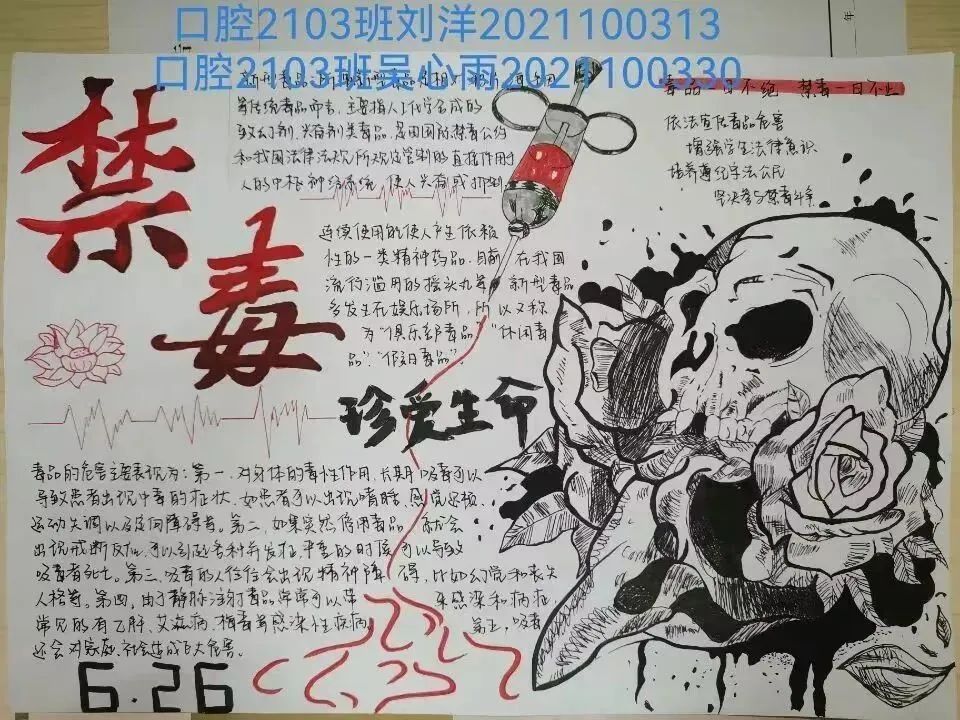 口腔2103班刘洋2021100313
口腔2103班吴心雨2021100330
年
禁毒
等传统毒品而言,主要指人工化学合成的
致幻剂、兴奋剂类毒品,是由国际禁毒公约
和我国法律法规所规定管制的直接作用于
人的中枢神经系统,使人兴奋或抑制
连续使用能使人产生依赖
性的一类精神药品.目前,在我国
流行滥用的摇头丸等 新型毒品
多发生在娱乐场所,所以又称
为“俱乐部毒品”“休闲毒
品”“假日毒品”
毒品一日不绝 禁毒一日不止
依法宣传毒品危害
增强学生法律意识
培养遵纪守法公民
坚决参与禁毒斗争
珍爱生命
毒品的危害主要表现为:第一.对身体的毒性作用,长期吸毒可以
导致患者出现中毒的症状,如患者可以出现嗜睡、感觉迟钝、
运动失调以及定向障碍等。第二.如果突然停用毒品 就会
出现戒断反应,可以引起各种并发症严重的时候可以导致
吸毒者死亡。第三、吸毒的人往往会出现精神障 碍,比如幻觉和丧失
人格等。第四,由于静脉注射毒品 常常可以带 来感染和病症
常见的有乙肝、艾滋病、梅毒等感染性疾病。 第五,吸毒
还会对家庭、社会造成巨大危害。
6.26